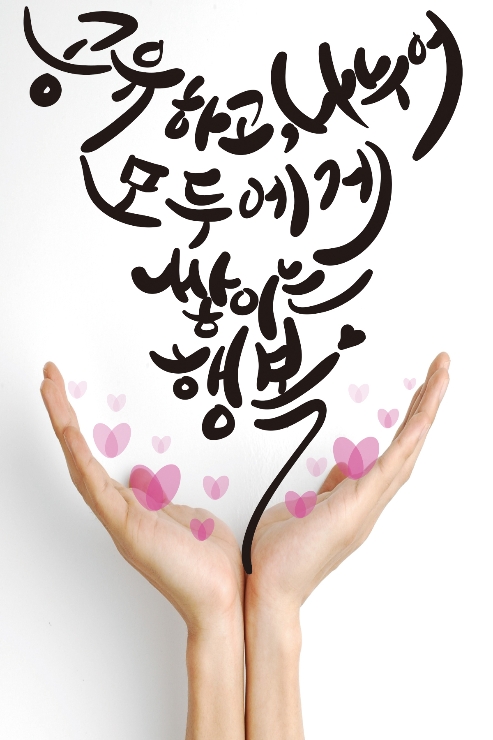 공유하고, 나누어
모두에게
쌓이는
행복